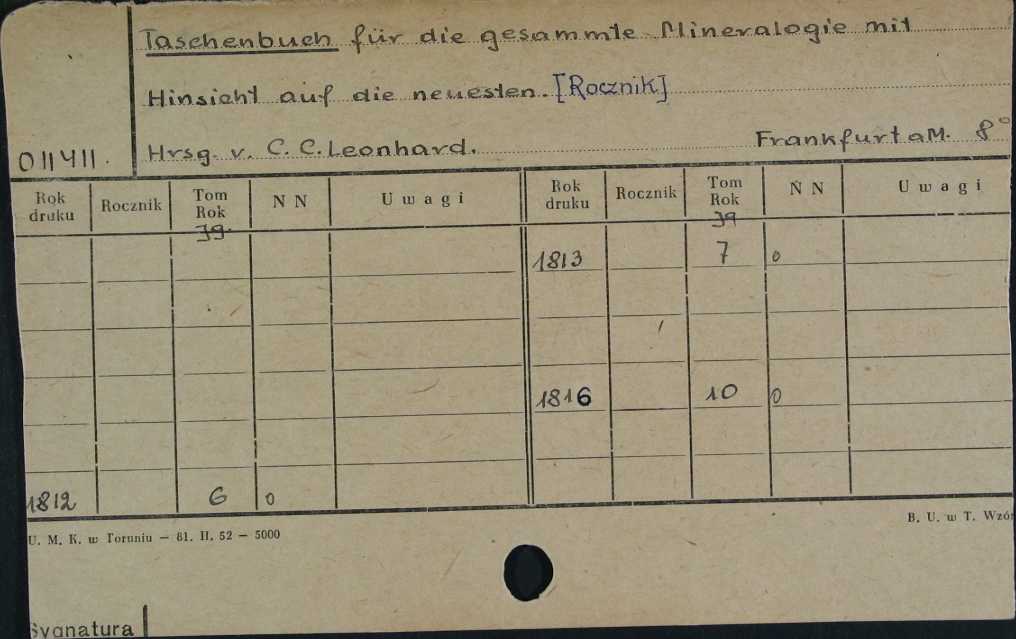 Taschenbuch für die gesammte Mineralogie mit
Hinsicht auf die neuesten. [Rocznik]
011411. Hrsg. v. C. C. Leonhard. Frankfurt aM. 8°
Rok druku Rocznik Tom Rok Jg. N N Uwagi Rok druku Rocznik Tom Rok Jg N N Uwagi
1813 7 0
1816 10 0
1812 6 0
U. M. K. w Toruniu — 81. II. 52 — 5000 B. U. w T. Wzór
Sygnatura